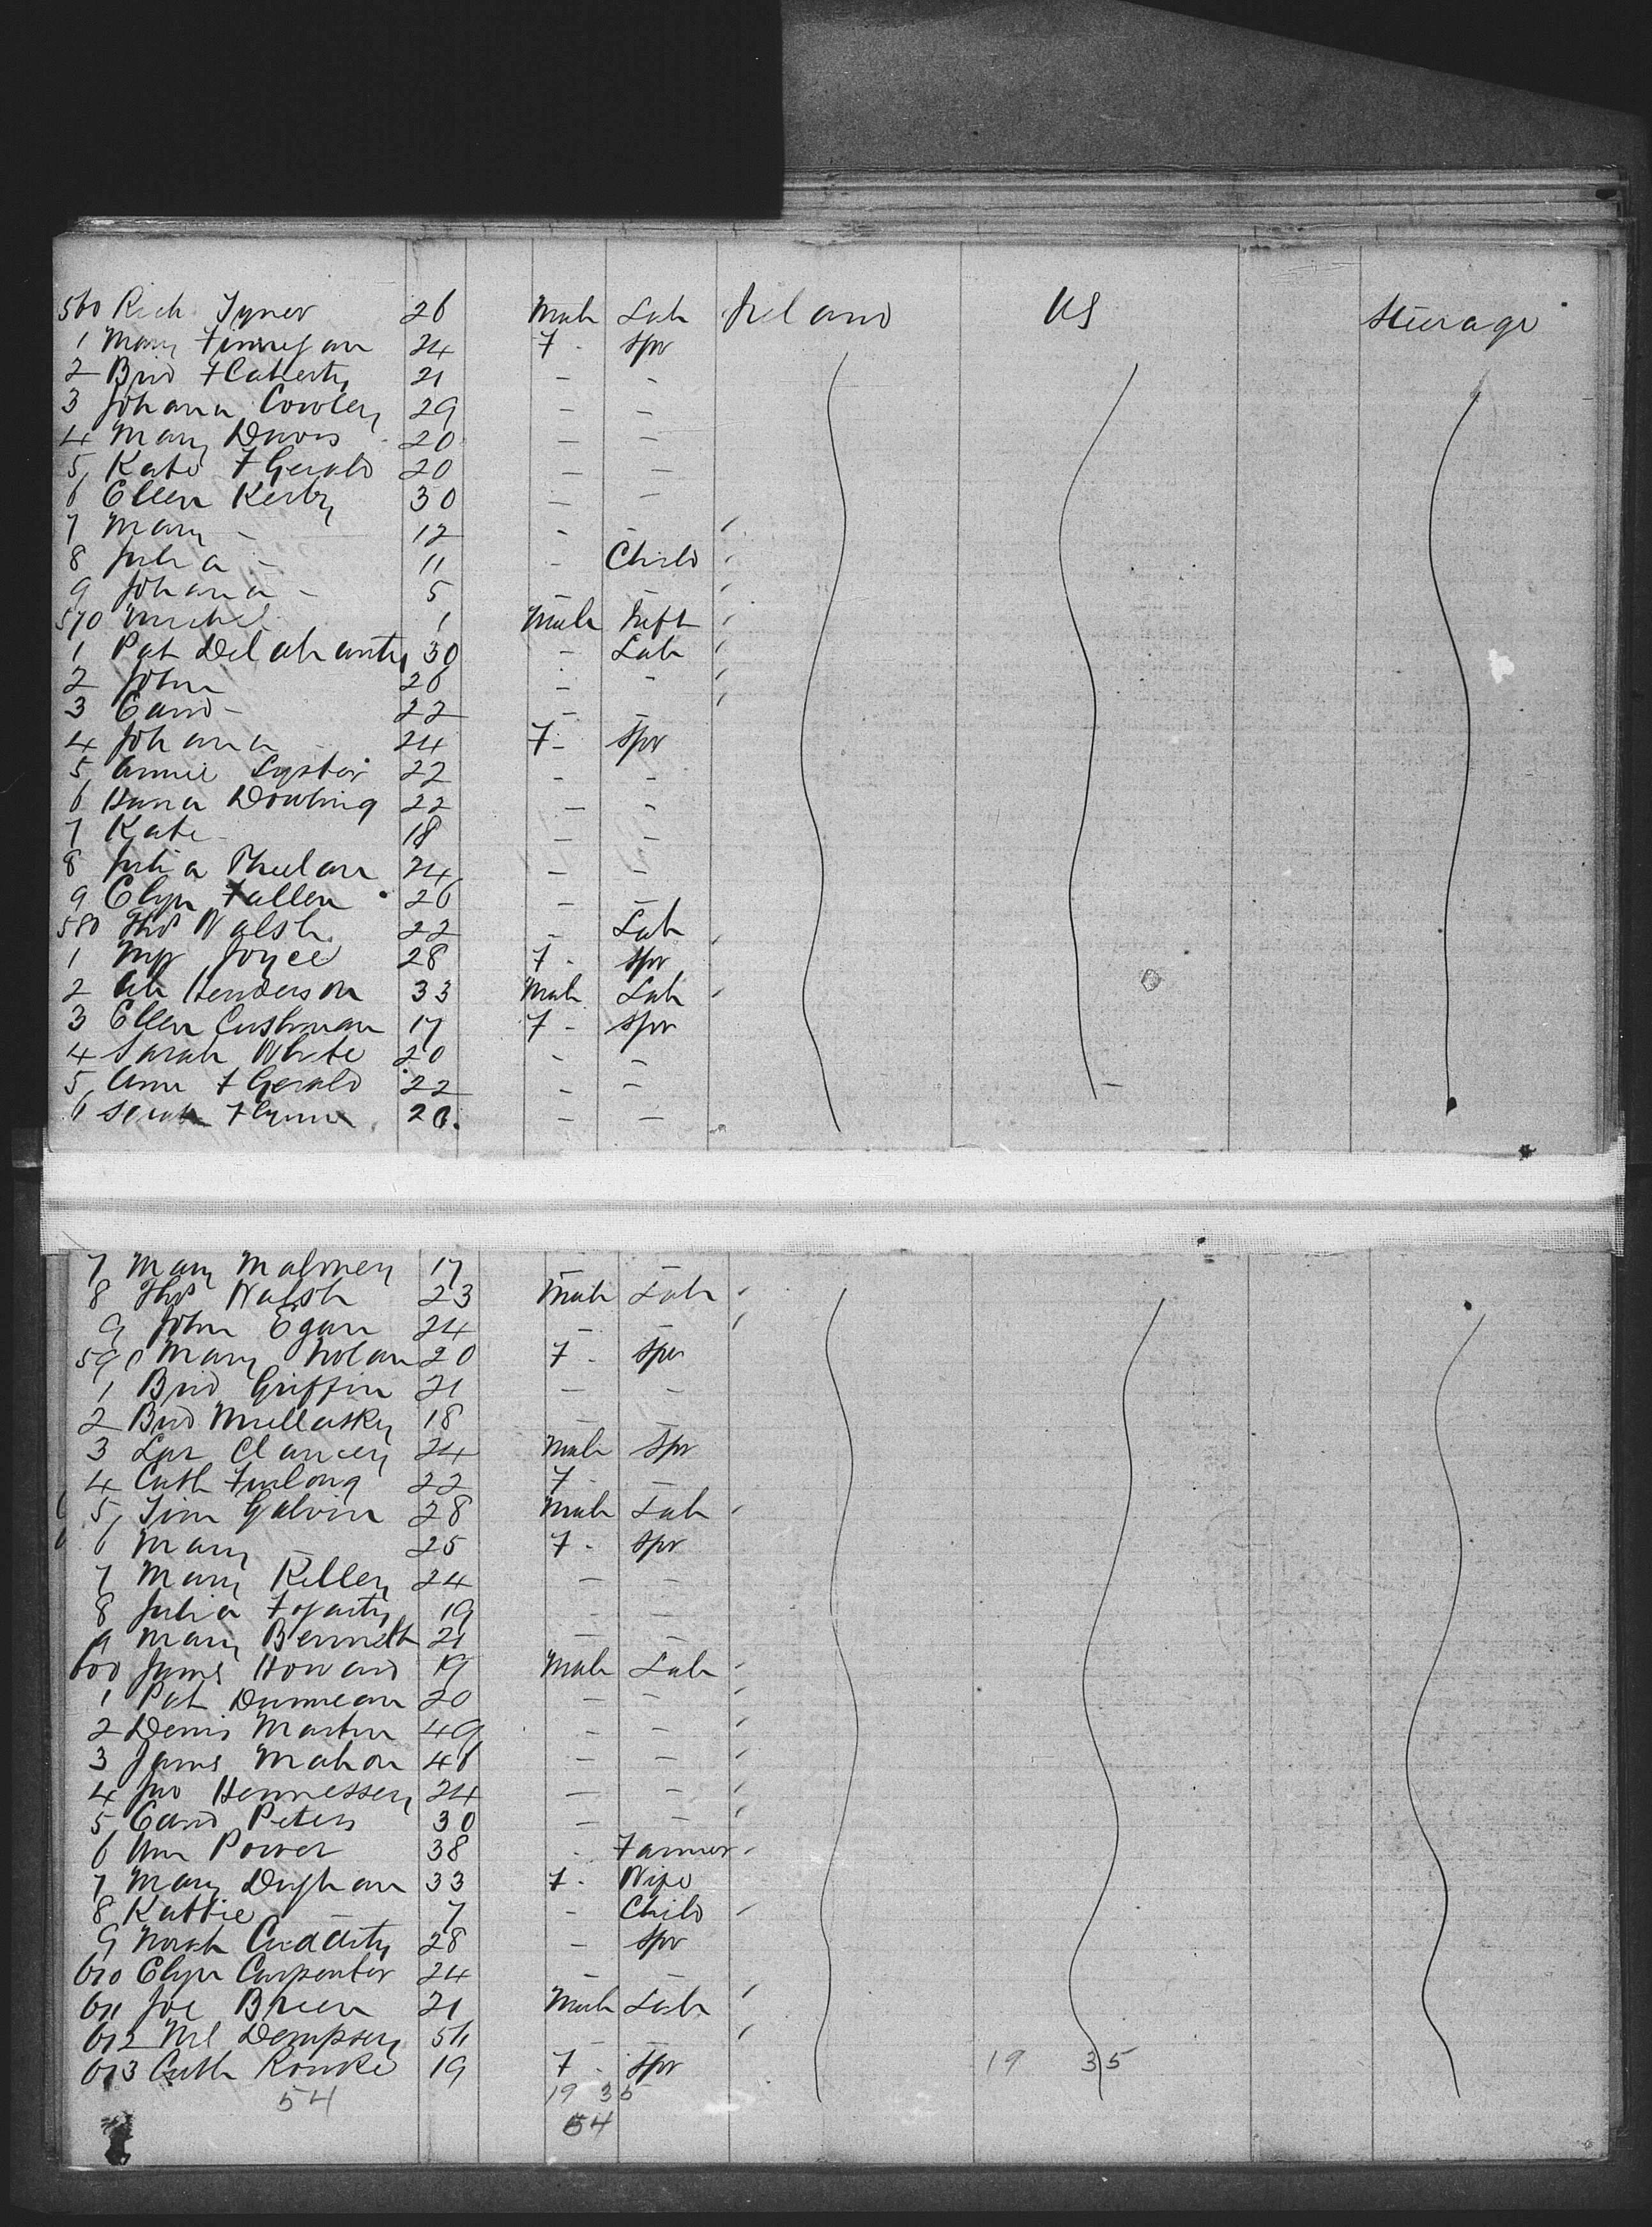 560 Rich Tyner 26 Male Lab Ireland US Steerage
1 Mary Finnegan 24 F - Spr
2 Brid Flaherty 21 - -
3 Johana Cowley 29 - -
4 Mary Davis 20 - -
5 Kate FGerald 20 - -
6 Ellen Kerby 30 - -
7 Mary - 12 - -
8 Julia - 11 - Child
9 Johana - 5 - -
570 Michel 1 Male Inft
1 Pat Delahanty 30 - Lab
2 John 26 - -
3 Edwd - 22 - -
4 Johana 24 F - Spr
5 Annie Lyster 22 - -
6 Hana Dowling 22 - -
7 Kate - 18 - -
8 Julia Phelan 24 - -
9 Fallen 26 - -
580 Thos Walsh 22 - Lab
1 Joyce 28 F - Spr
2 Henderson 33 Male Lab
3 Ellen Cushman 17 F - Spr
4 Sarah White 20 - -
5 Ann FGerald 22 - -
6 Sarah Flynn 20 - -
7 Mary Maloney 17 - -
8 Thos Walsh 23 Male Lab
9 John Egan 24 - -
590 Mary Nolan 20 F - Spr
1 Brid Griffin 21 - -
2 Brid Mullasky 18 - -
3 Clancey 24 Male Spr
4 Cath Furlong 22 F - -
5 Tim Galvin 28 Male Lab
6 Mary - 25 F - Spr
7 Mary Kelley 24 - -
8 Julia Fogarty 19 - -
9 Mary Bennett 21 - -
600 James Howard 19 Male Lab
1 Pat Dunnean 20 - -
2 Denis Martin 49 - -
3 James Mahon 46 - -
4 Jno Hennessey 24 - -
5 Edwd Peters 30 - -
6 Wm Power 38 - Farmer
7 Mary Deighan 33 F - Wife
8 Kattie - 7 - Child
9 Norah Cuddity 28 - Spr
610 Carpenter 24 - -
611 Joe Breen 21 Male Lab
612 Ml Dempsey 54 - -
613 Cath Rourke 19 F - Spr 19 35
54 19 35
54